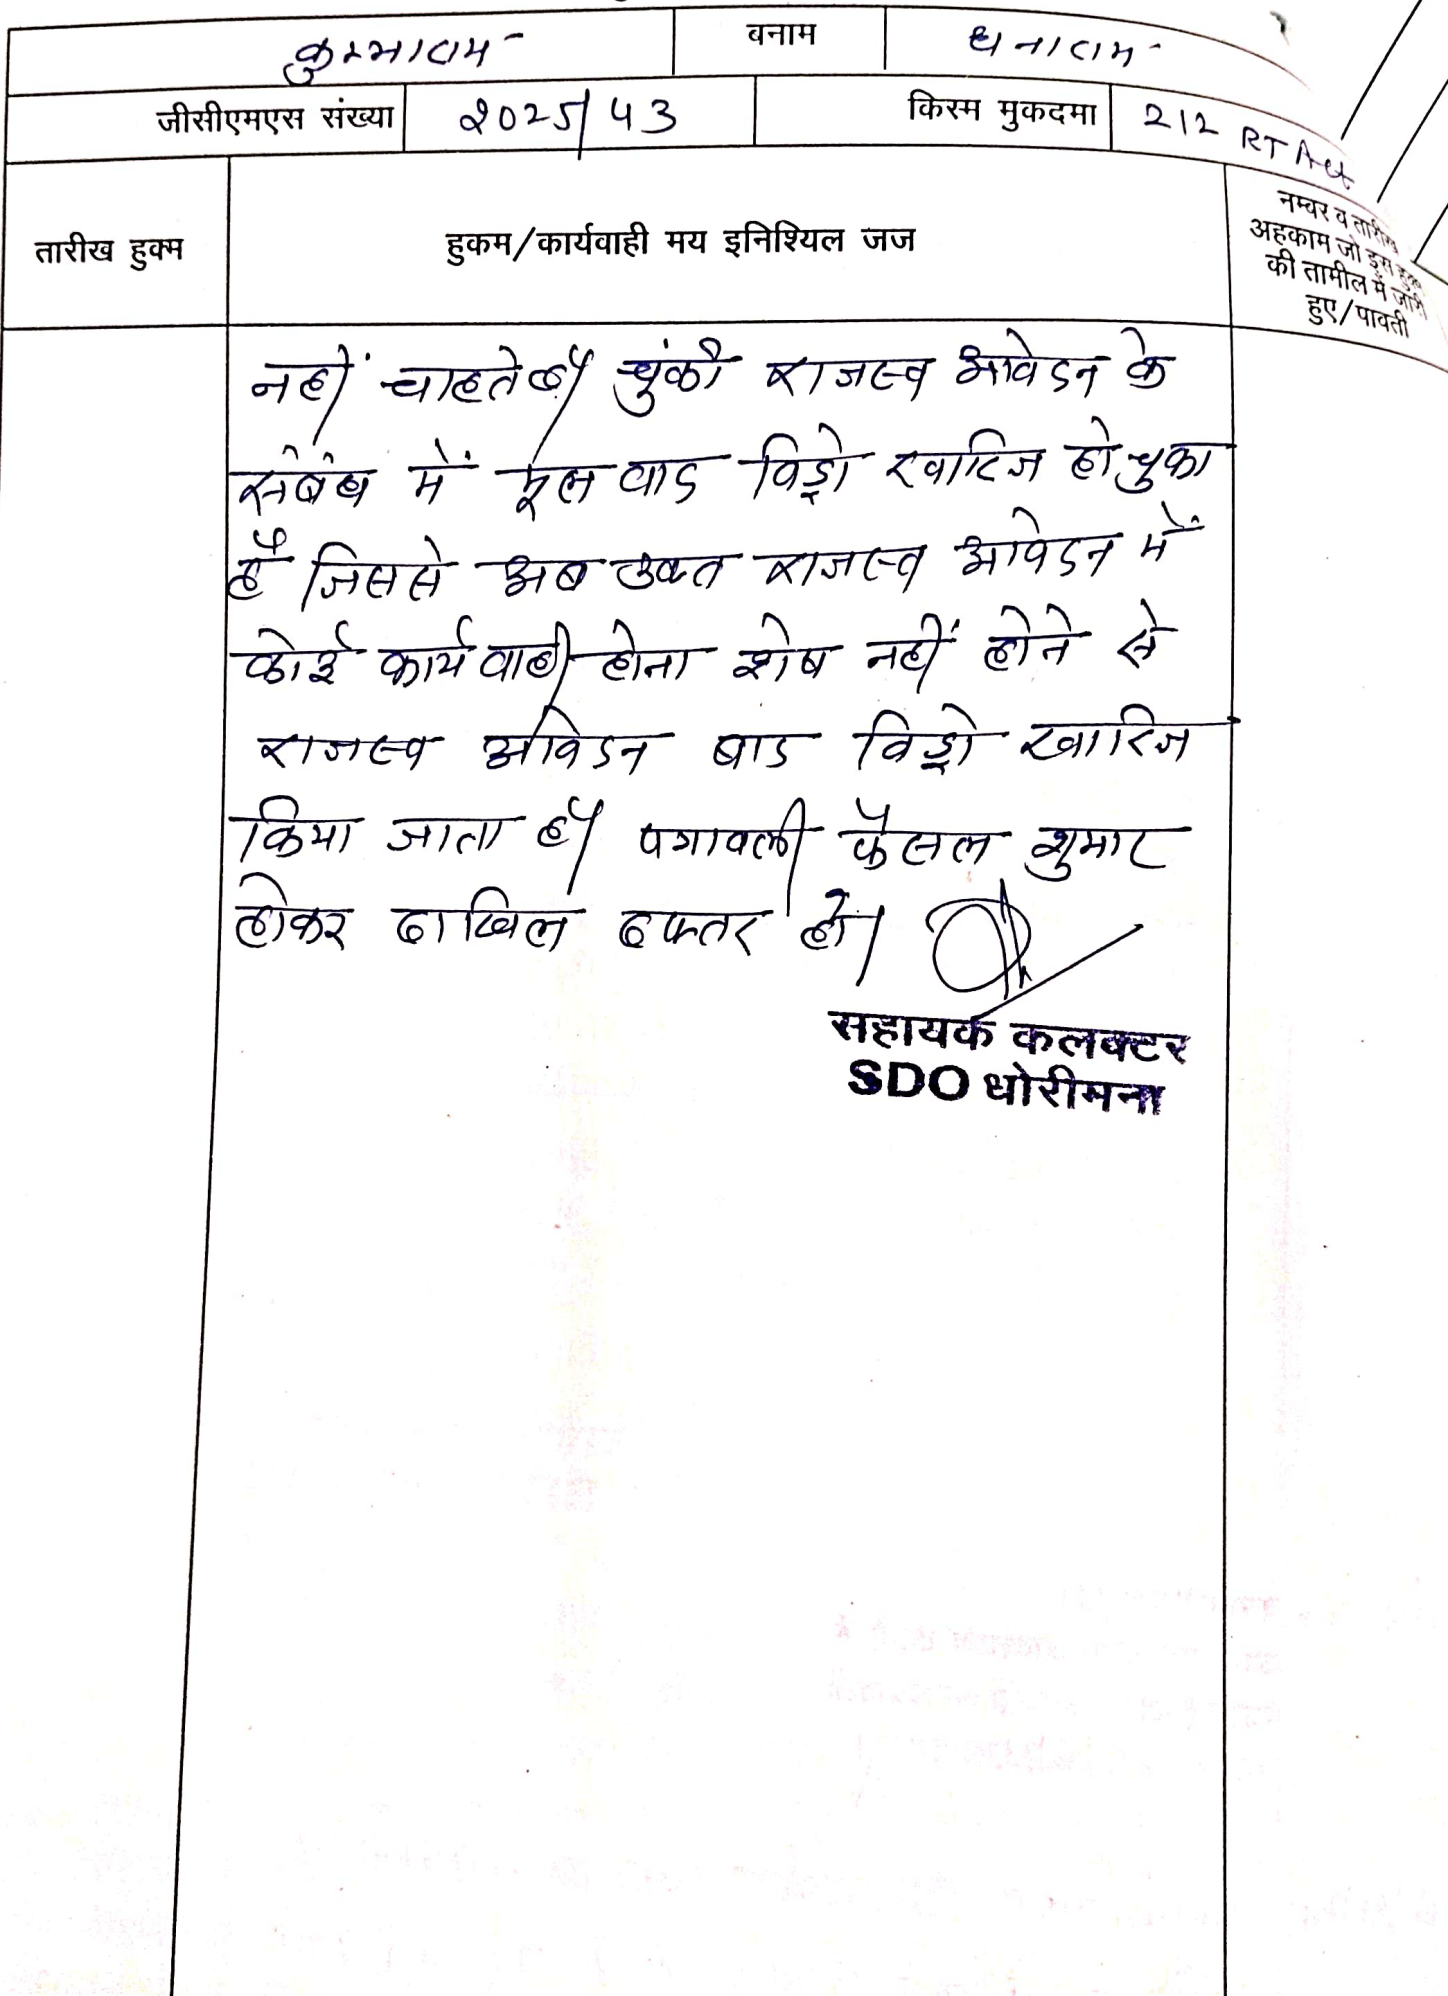 कुम्भाराम बनाम धनाराम
जीसीएमएस संख्या 2025/43 किस्म मुकदमा 212 RT Act
तारीख हुक्म
हुकम/कार्यवाही मय इनिश्यिल जज
नम्बर व तारीख
अहकाम जो इस हुक्म
की तामील में जारी
हुए/पावती
नहीं चाहते है। चुंकी राजस्व आवेदन के
संबंध में मूल वाद विड्रो खारिज हो चुका
है जिससे अब उक्त राजस्व आवेदन में
कोई कार्यवाही होना शेष नहीं होने से
राजस्व आवेदन बाद विड्रो खारिज
किया जाता है। पत्रावली फैसल शुमार
होकर दाखिल दफ्तर हो।
सहायक कलक्टर
SDO धोरीमना